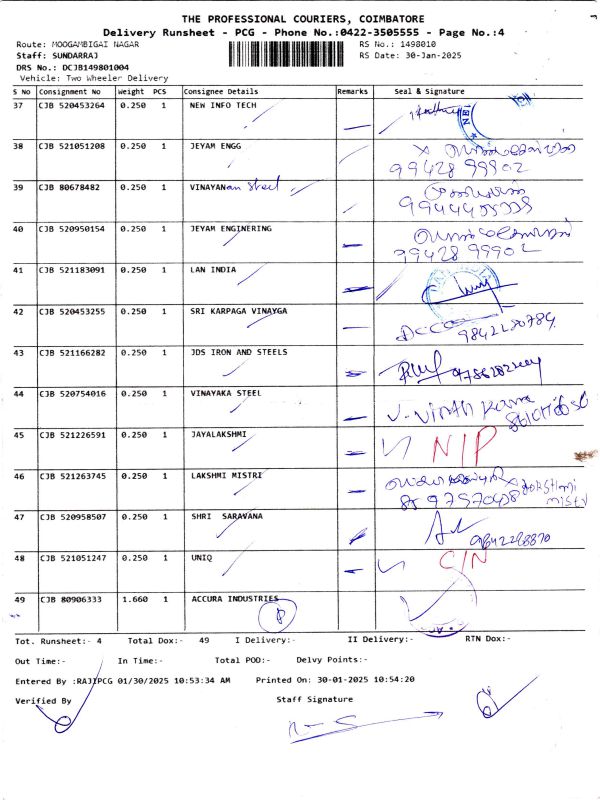 THE PROFESSIONAL COURIERS, COIMBATORE
Delivery Runsheet - PCG - Phone No.:0422-3505555 - Page No.:4
Route: MOOGAMBIGAI NAGAR RS No.: 1498010
Staff: SUNDARRAJ RS Date: 30-Jan-2025
DRS No.: DCJB149801004
Vehicle: Two Wheeler Delivery
S No Consignment No Weight PCS Consignee Details Remarks Seal & Signature
37 CJB 520453264 0.250 1 NEW INFO TECH
38 CJB 521051208 0.250 1 JEYAM ENGG
99428 99902
39 CJB 80678482 0.250 1 VINAYAN an Steel
40 CJB 520950154 0.250 1 JEYAM ENGINERING
99428 99902
41 CJB 521183091 0.250 1 LAN INDIA
42 CJB 520453255 0.250 1 SRI KARPAGA VINAYGA
43 CJB 521166282 0.250 1 JDS IRON AND STEELS
44 CJB 520754016 0.250 1 VINAYAKA STEEL
45 CJB 521226591 0.250 1 JAYALAKSHMI N/P
46 CJB 521263745 0.250 1 LAKSHMI MISTRI
47 CJB 520958507 0.250 1 SHRI SARAVANA
48 CJB 521051247 0.250 1 UNIQ C/N
49 CJB 80906333 1.660 1 ACCURA INDUSTRIES
Tot. Runsheet:- 4 Total Dox:- 49 I Delivery:- II Delivery:- RTN Dox:-
Out Time:- In Time:- Total POD:- Delvy Points:-
Entered By :RAJIPCG 01/30/2025 10:53:34 AM Printed On: 30-01-2025 10:54:20
Verified By Staff Signature